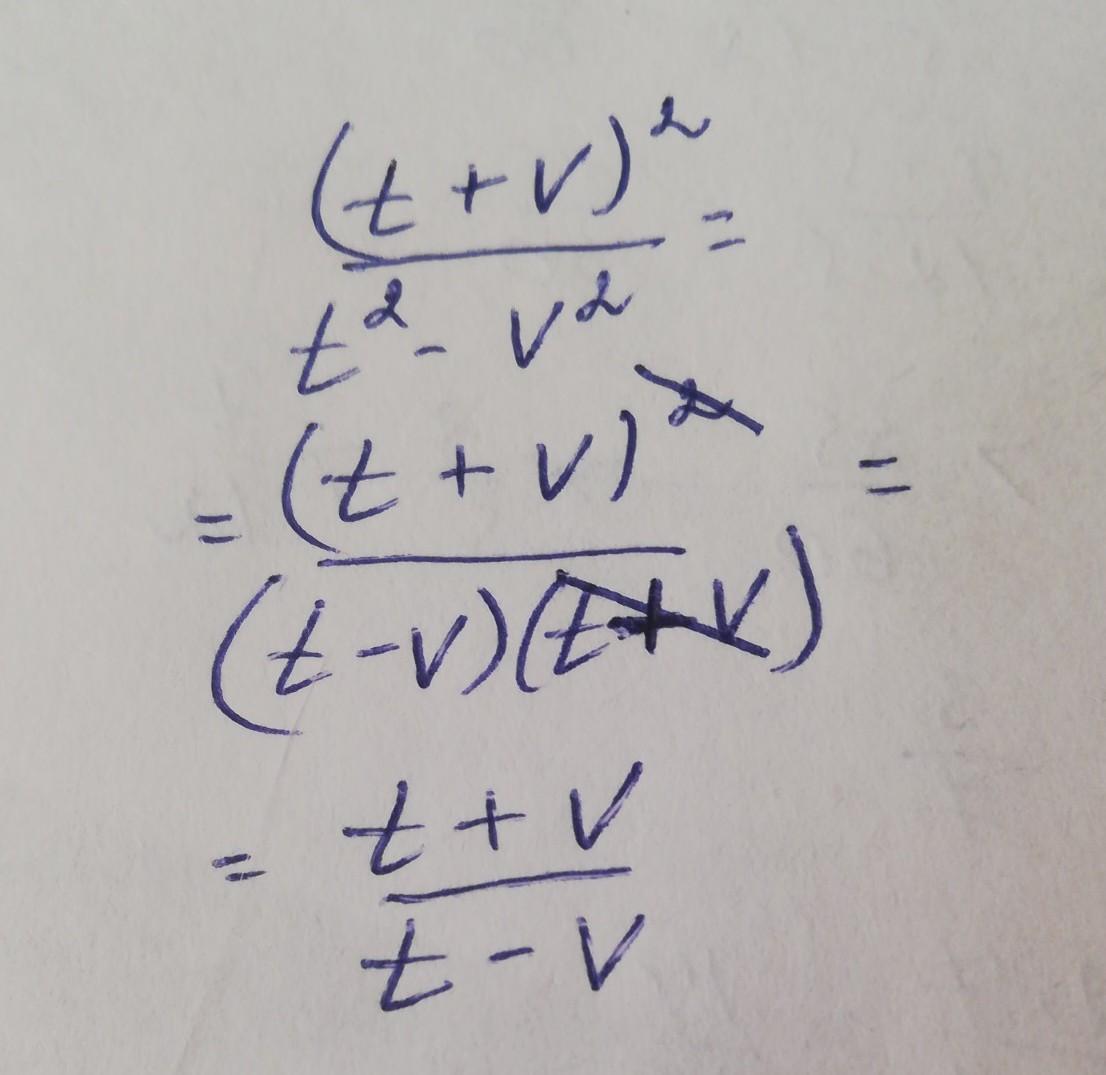 (t + v)² =
t² - v²
= (t + v)² =
(t - v)(t + v)
= t + v
t - v